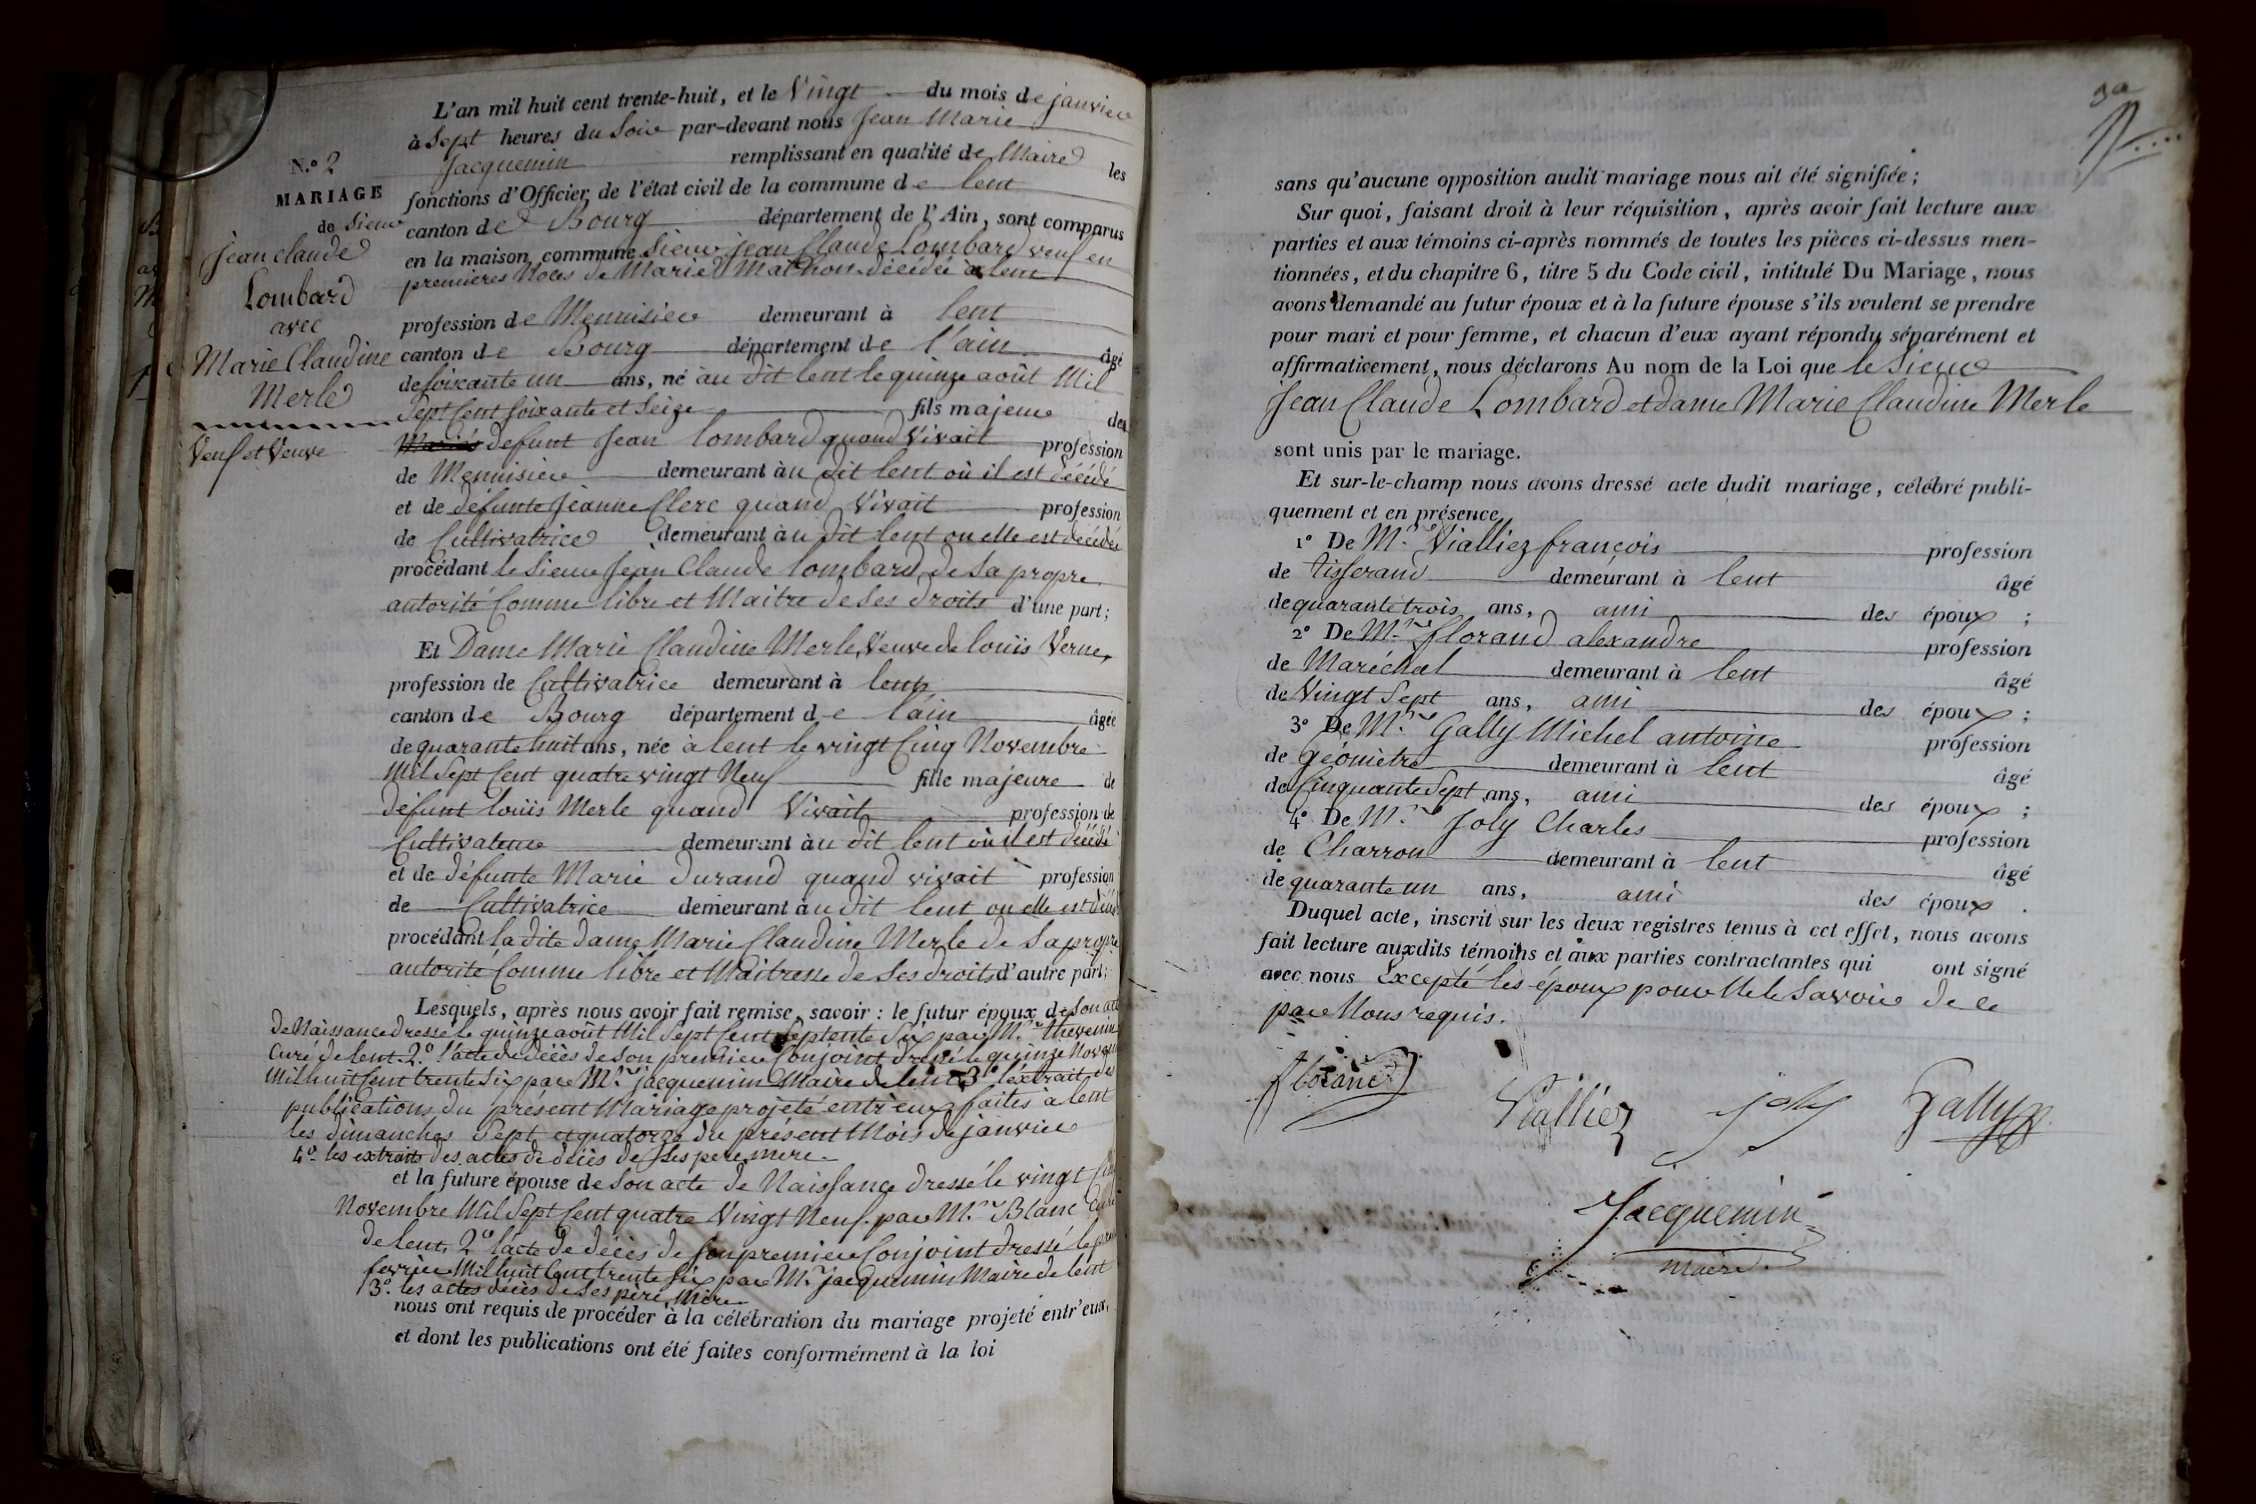 L'an mil huit cent trente-huit, et le Vingt du mois de janvier
à Sept heures du Soir par-devant nous Jean Marie
Jacquemin remplissant en qualité de Maire les
fonctions d'Officier de l'état civil de la commune de lent
canton de Bourg département de l'Ain, sont comparus
en la maison commune Sieur jean Claude Lombard veuf en
premieres Noces de Marie Mathon décédée a lent
profession de Menuisier demeurant à lent
canton de Bourg département de l'ain âgé
de soixante un ans, né au dit lent le quinze août Mil
Sept Cent soixante et Seize fils majeur des
Mariés defunt Jean lombard quand Vivait profession
de Menuisier demeurant àu dit lent où il est décédé
et de défunte Jeanne Clerc quand Vivait profession
de Cultivatrice demeurant àu dit lent ou elle est décédée
procédant le Sieur Jean Claude lombard de Sa propre
autorité Comme libre et Maitre de Ses droits d'une part;
Et Dame Marie Claudine Merle, Veuve de louïs Verne,
profession de Cultivatrice demeurant à lent
canton de Bourg département de l'ain âgée
de quarante huit ans, née à lent le vingt Cinq Novembre
Mil Sept Cent quatre vingt Neuf fille majeure de
défunt louïs Merle quand Vivait profession de
Cultivateur demeurant àu dit lent où il est décédé
et de défunte Marie Durand quand vivait profession
de Cultivatrice demeurant àu dit lent ou elle est
procédant la dite dame Marie Claudine Merle de Sa propre
autorité Comme libre et Maitresse de Ses droits d'autre part;
Lesquels, après nous avoir fait remise, savoir: le futur époux de Son acte
de Naissance dressé le quinze août Mil Sept Cent Septente Six par Mr. Thevenin
Curé de lent 2º l'acte de décès de Son premier Conjoint dressé le quinze
Mil huit Cent trente Six par Mr. jacquemin Maire de lent 3º l'extrait de
publications du présent Mariage projeté entr'eux faites à lent
les dimanches Sept et quatorze du présent Mois de janvier
4º les extraits des actes de décès de Ses pere, mere.
et la future épouse de Son acte de Naissance dressé le vingt
Novembre Mil Sept Cent quatre Vingt Neuf par Mr. Blanc Curé
de lent, 2º l'acte de décès de son premier Conjoint dressé le
fevrier Mil huit Cent trente Six par Mr. Jacquemin Maire de lent
3º les actes décès de Ses père, Mère
nous ont requis de procéder à la célébration du mariage projeté entr'eux,
et dont les publications ont été faites conformément à la loi
N.º 2
MARIAGE
de Sieur
Jean claude
Lombard
avec
Marie Claudine
Merle
Veuf et Veuve
sans qu'aucune opposition audit mariage nous ait été signifiée;
Sur quoi, faisant droit à leur réquisition, après avoir fait lecture aux
parties et aux témoins ci-après nommés de toutes les pièces ci-dessus men-
tionnées, et du chapitre 6, titre 5 du Code civil, intitulé Du Mariage, nous
avons demandé au futur époux et à la future épouse s'ils veulent se prendre
pour mari et pour femme, et chacun d'eux ayant répondu séparément et
affirmativement, nous déclarons Au nom de la Loi que le Sieur
Jean Claude Lombard et dame Marie Claudine Merle
sont unis par le mariage.
Et sur-le-champ nous avons dressé acte dudit mariage, célébré publi-
quement et en présence
1º De Mr. Vialliez françois profession
de tisserand demeurant à lent âgé
de quarante trois ans, ami des époux ;
2º De Mr. florand alexandre profession
de Maréchal demeurant à lent âgé
de Vingt Sept ans, ami des époux ;
3º De Mr. Gally Michel antoine profession
de géomètre demeurant à lent âgé
de Cinquante Sept ans, ami des époux ;
4º De Mr. Joly Charles profession
de Charron demeurant à lent âgé
de quarante un ans, ami des époux .
Duquel acte, inscrit sur les deux registres tenus à cet effet, nous avons
fait lecture auxdits témoins et aux parties contractantes qui ont signé
avec nous Excepté les époux pour Ne le Savoir de ce
par Nous requis.
florand Vialliez joly Gally
Jacquemin
maire.